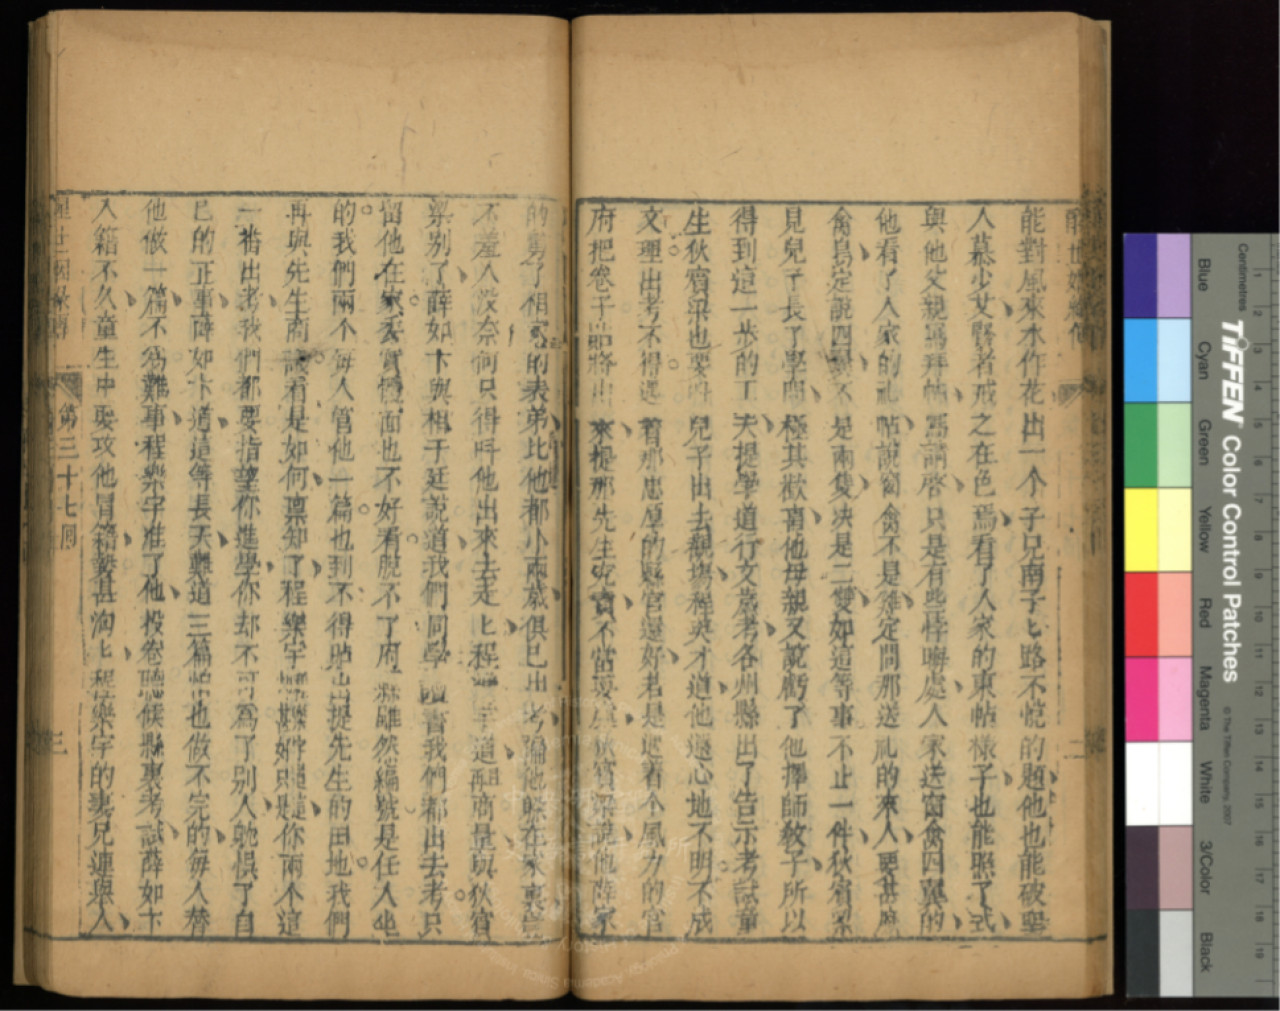 醒世姻緣傳
能對風來水作花出一个子兄南子匕路不悅的題他也能破聖
人慕少艾賢者戒之在色焉看了人家的柬帖樣子也能照了式
與他父親寫拜帖寫請啓只是有些悖晦處人家送窗禽四翼的
他看了人家的礼帖說窗禽不是雞定問那送礼的來人要甚麽
禽鳥定說四翼不是兩隻决是二雙如這等事不止一件狄賓梁
見兒子長了學問極其歡喜他母親又說虧了他擇師教子所以
得到這一步的工夫提學道行文歲考各州縣出了告示考試童
生狄賓梁也要叫兒子出去觀塲程英才道他還心地不明不成
文理出考不得遇着那忠厚的縣官還好若是遇着个風力的官
府把卷子貼將出來提那先生究責不當耍與狄賓梁說他薛家
的舅子相家的表弟比他都小兩歲俱已出考偏他躲在家裏
不羞人沒奈何只得呌他出來去走匕程樂宇道再商量與狄賓
梁别了薛如卞與相于廷說道我們同學讀書我們都出去考只
留他在家去實體面也不好看脫不了府縣雖然編號是任人坐
的我們兩个每人管他一篇也到不得貼出提先生的田地我們
再與先生商議看是如何禀知了程樂宇程樂宇道你兩个這
一番出考我們都要指望你進學你却不可爲了別人躭悞了自
已的正事薛如卞道這等長天難道三篇怕也做不完的每人替
他做一篇不爲難事程樂宇准了他投卷聽候縣裏考試薛如卞
入籍不久童生中要攻他冒籍勢甚洶匕程樂宇的妻兄連舉人
第三十七囘
三